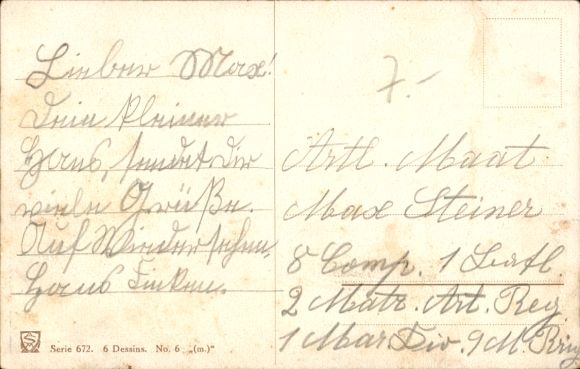 Lieber Max!
Dein kleiner
Hans, sendet dir
viele Grüße.
Auf Wiedersehen,
Hans Finken.
7.-
Artl. Maat
Max Steiner
8 Comp. 1 Batl.
2 Matr. Art. Reg.
1 Mar Div. 9 M. Brig
Serie 672. 6 Dessins. No. 6 „(m.)"